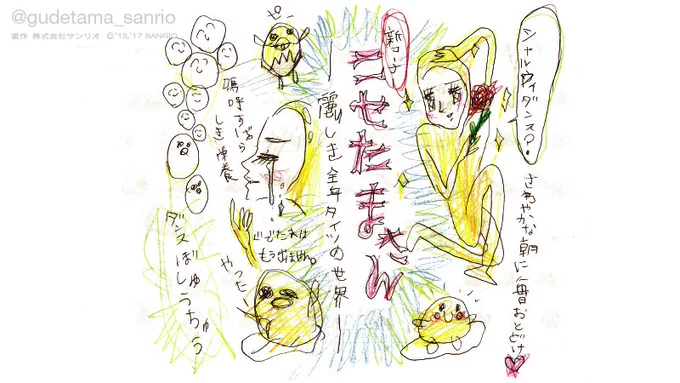 @gudetama_sanrio
著作 株式会社サンリオ ©'13,'17 SANRIO
シャルウィダンス?
さわやかな朝に毎日おとどけ
新シ子
ニセたまさん
麗しき全身タイツの世界
嗚呼すばらしき栄養
ぐでたまは
もう出ません。
やった
ダンスぼしゅうちゅう